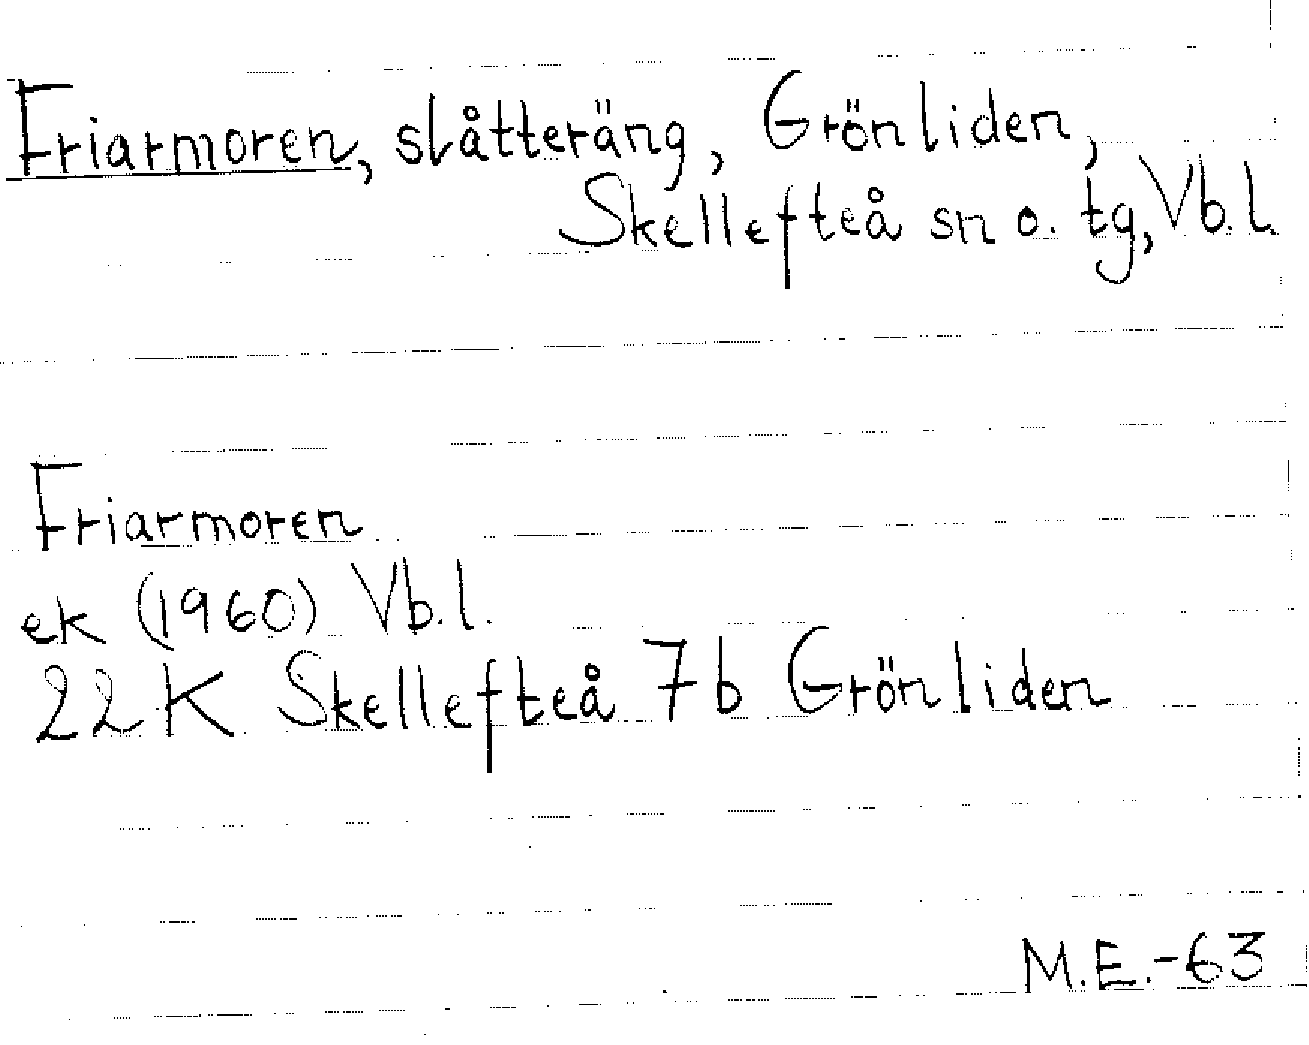 Friarmoren, slåtteräng, Grönliden,
Skellefteå sn o. tg, Vb.l.
Friarmoren
ek (1960) Vb.l.
22 K Skellefteå 7b Grönliden
M.E.-63